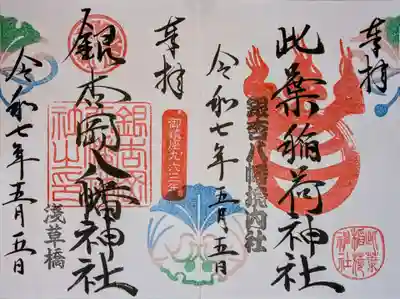 奉拝
此葉稲荷神社
銀杏八幡境内社
令和七年五月五日
此葉稲荷神社
奉拝
御鎮座九六三年
銀杏岡八幡神社
銀杏岡八幡神社之印
浅草橋
令和七年五月五日